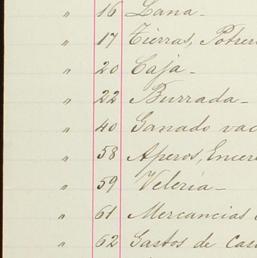 " 16 Lana -
" 17 Tierras, Potrer
" 20 Caja -
" 22 Burrada -
" 40 Ganado vac
" 58 Aperos, Encer
" 59 Veleria -
" 61 Mercancias
" 62 Gastos de Cas